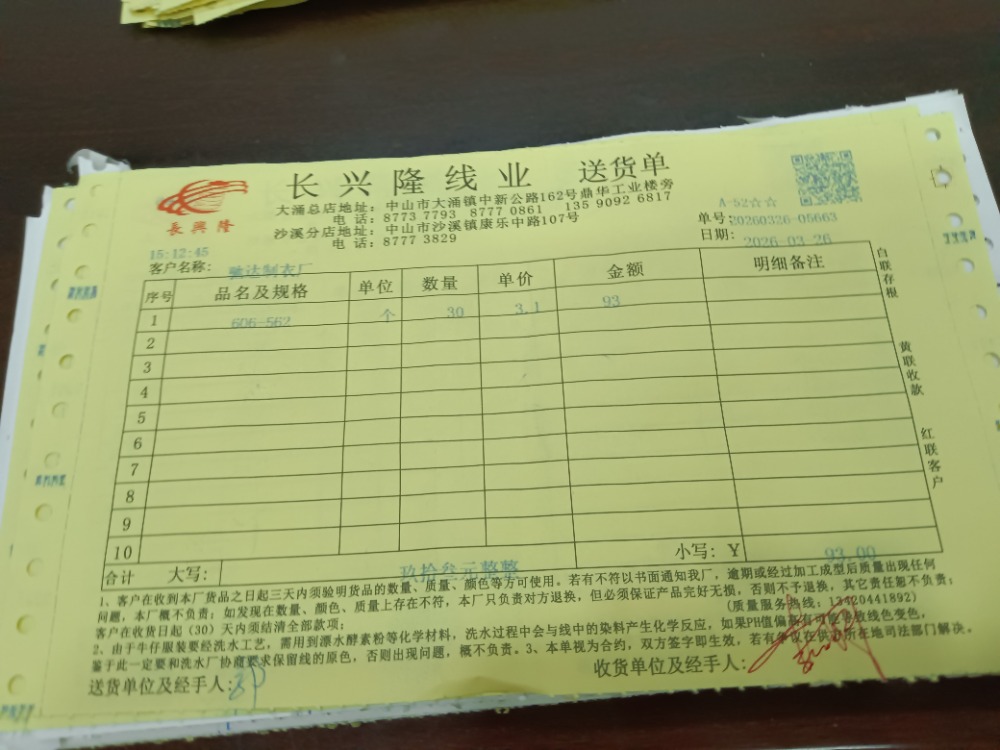 长兴隆线业 送货单
長興隆
大涌总店地址：中山市大涌镇中新公路162号鼎华工业楼旁
电话：8773 7793 8777 0861 135 9092 6817
沙溪分店地址：中山市沙溪镇康乐中路107号
电话：8777 3829
A-52☆☆
单号：20260326-05663
日期：2026-03-26
15:12:45
客户名称：驰达制衣厂
序号 品名及规格 单位 数量 单价 金额 明细备注
1 606-562 个 30 3.1 93
2
3
4
5
6
7
8
9
10
合计 大写：玖拾叁元整整 小写：￥ 93.00
白联存根 黄联收款 红联客户
1、客户在收到本厂货品之日起三天内须验明货品的数量、质量、颜色等方可使用。若有不符以书面通知我厂，逾期或经过加工成型后质量出现任何
问题，本厂概不负责；如发现在数量、颜色、质量上存在不符，本厂只负责对方退换，但必须保证产品完好无损，否则不予退换，其它责任恕不负责；
客户在收货日起（30）天内须结清全部款项； （质量服务热线：13420441892）
2、由于牛仔服装要经洗水工艺，需用到漂水酵素粉等化学材料，洗水过程中会与线中的染料产生化学反应，如果PH值偏高有可能导致线色变色，
鉴于此一定要和洗水厂协商要求保留线的原色，否则出现问题，概不负责。3、本单视为合约，双方签字即生效，若有争议在供方所在地司法部门解决。
送货单位及经手人：
收货单位及经手人：